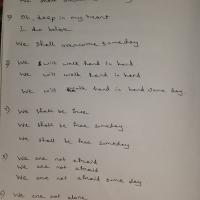 Oh deep in my heart
I do believe
We shall overcome someday
We will walk hand in hand
We will walk hand in hand
We will walk hand in hand some day
We shall be free
We shall be free someday
We shall be free someday
We are not afraid
We are not afraid
We are not afraid some day
We are not alone